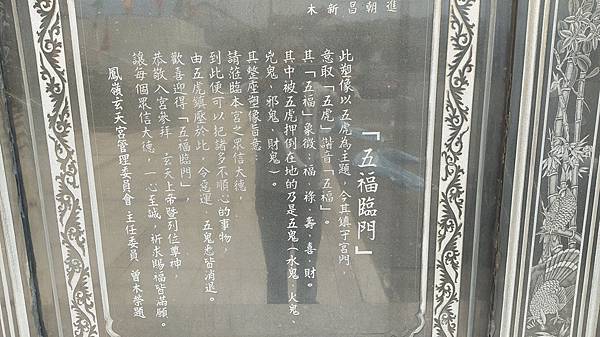 進朝昌新木
「五福臨門」
此塑像以五虎為主題，今其鎮于宮門，
意取「五虎」諧音「五福」。
其「五福」象徵：福、祿、壽、喜、財。
其中被五虎押倒在地的乃是五鬼（水鬼、火鬼、
兇鬼、邪鬼、財鬼）。
其整座塑像旨意：
請蒞臨本宮之眾信大德，
到此便可以把諸多不順心的事物，
由五虎鎮壓於此，令惡運、五鬼悉皆消退。
歡喜迎得「五福臨門」，
恭敬入宮參拜 玄天上帝暨列位尊神，
讓每個眾信大德，一心至誠，祈求賜福皆滿願。
鳳嶺玄天宮管理委員會 主任委員 曾木榮題